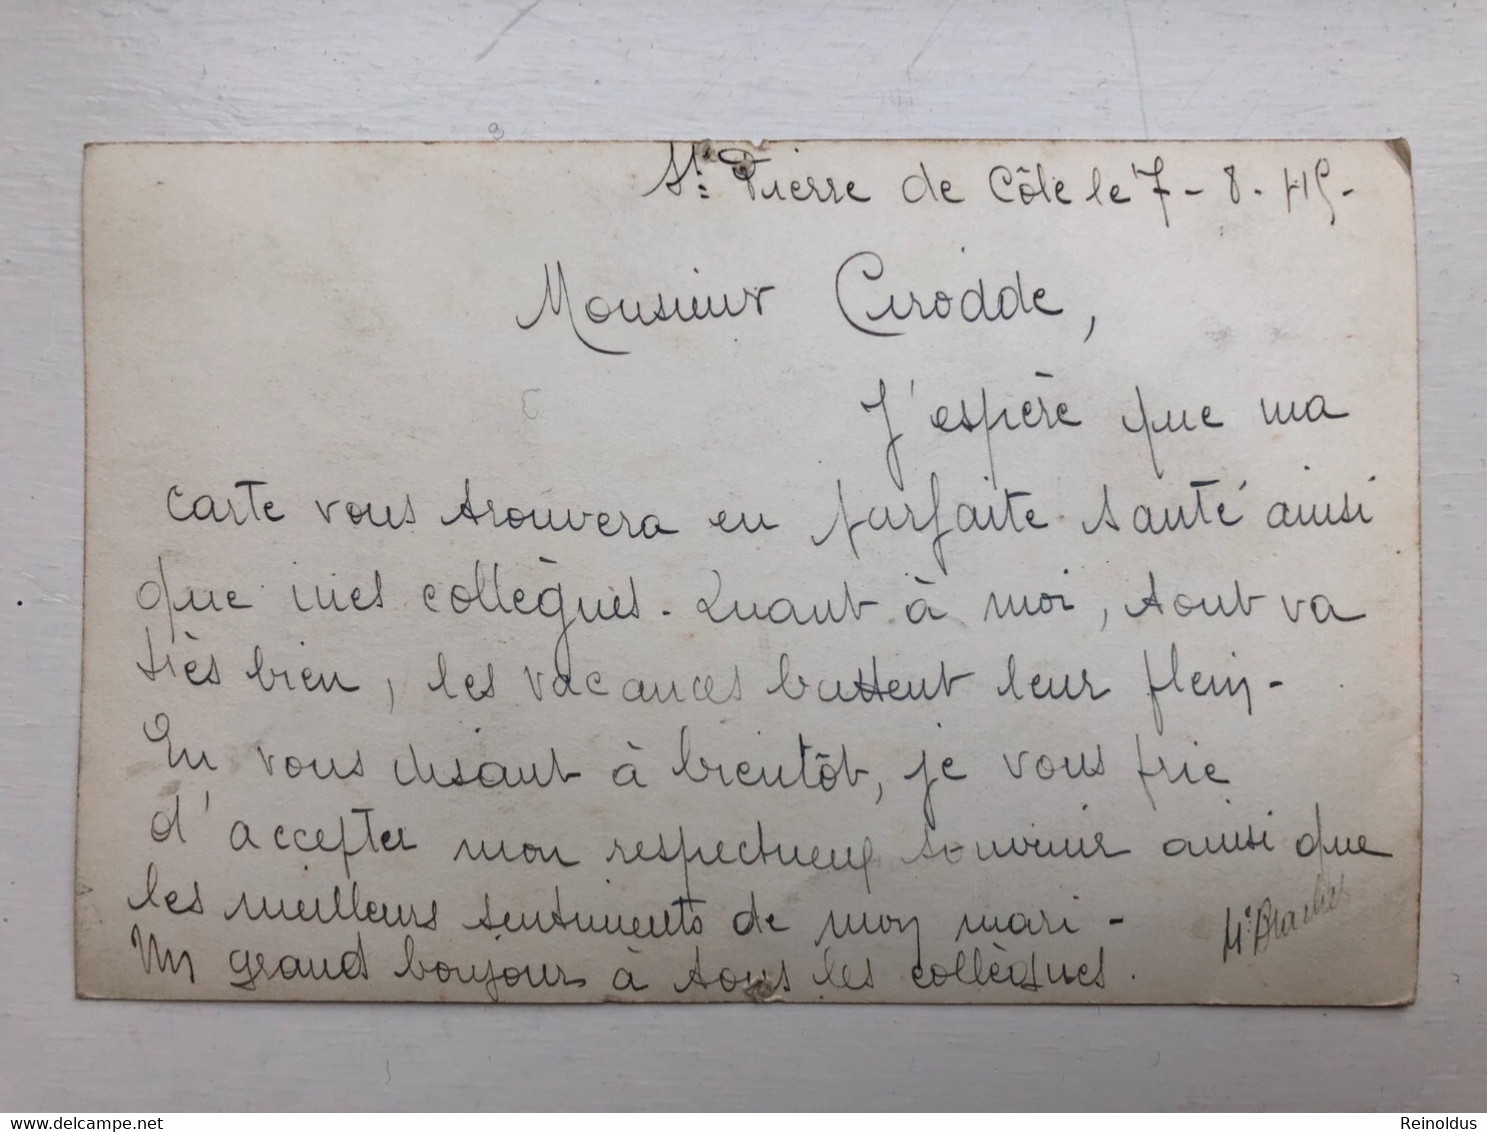 St. Pierre de Côle le 7 - 8 - 45 -
Monsieur Cirodde,
J'espère que ma
carte vous trouvera en parfaite santé ainsi
que mes collègues. Quant à moi, tout va
très bien, les vacances battent leur plein -
En vous disant à bientôt, je vous prie
d'accepter mon respectueux souvenir ainsi que
les meilleurs sentiments de mon mari -
Un grand bonjour à tous les collègues.
www.delcampe.net
Reinoldus